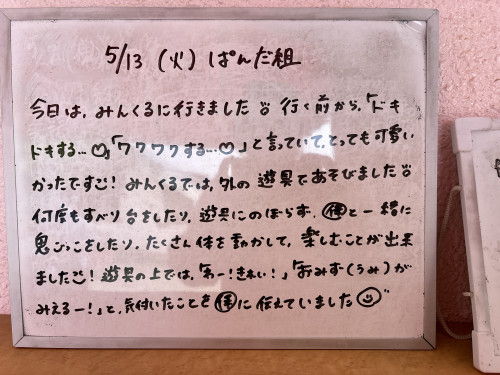 5/13 (火) ぱんだ組
今日は、みんくるに行きました 行く前から、「ドキ
ドキする…」「ワクワクする…」と言っていて、とっても可愛い
かったです! みんくるでは、外の遊具であそびました
何度もすべり台をしたり、遊具にのぼらず、保と一緒に
鬼ごっこをしたり、たくさん体を動かして、楽しむことが出来
ました! 遊具の上では、「わー!きれい!」「おみず(うみ)が
みえるー!」と、気付いたことを保に伝えていました